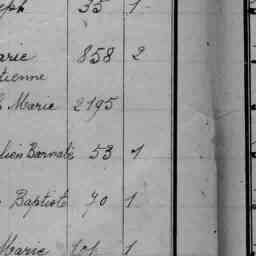 eph 35 1
arie 858 2
tienne
Marie 2195
lien Barnabé 53 1
Baptiste 70 1
Marie 101 1